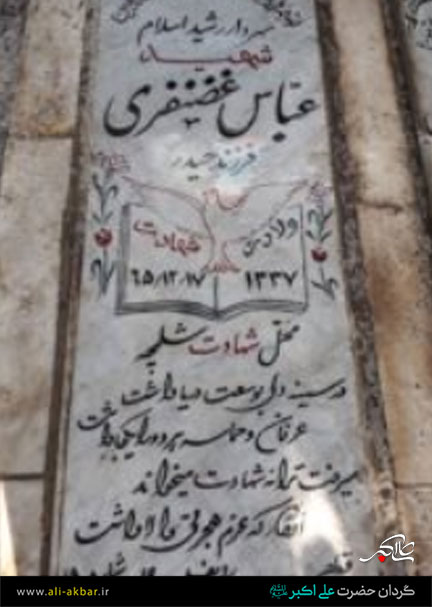 سردار رشید اسلام
شهید
عباس غضنفری
فرزند حیدر
ولادت شهادت
۱۳۳۷ ۶۵/۱۲/۱۷
محل شهادت شلمچه
در سینه دلی بوسعت دریا داشت
عرفان و حماسه هر دو را یکجا داشت
میرفت ترانه شهادت میخواند
آنقدر که عزم هجرتی والا داشت
علی اکبر
www.ali-akbar.ir
گردان حضرت علی اکبر